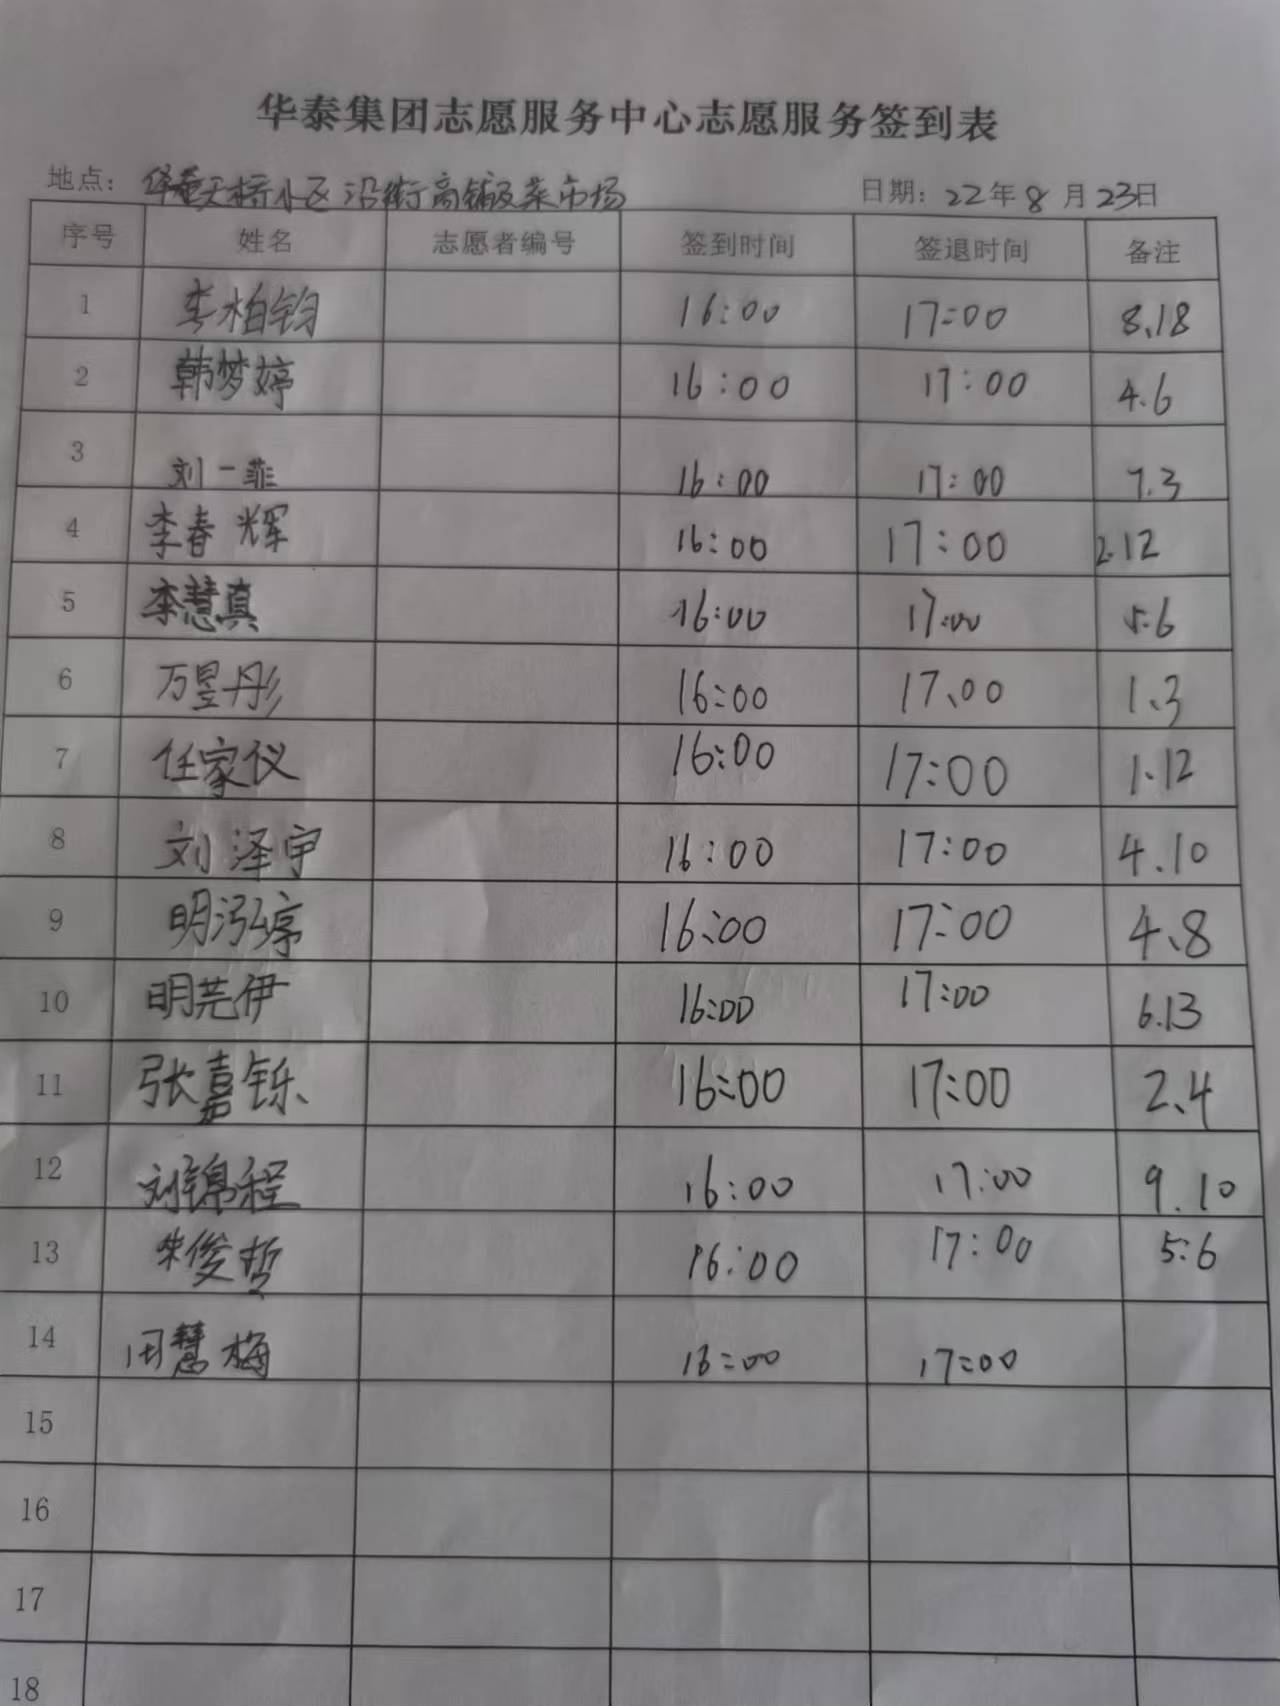 华泰集团志愿服务中心志愿服务签到表
地点：华泰天桥小区沿街商铺及菜市场 日期：22年8月23日
序号 姓名 志愿者编号 签到时间 签退时间 备注
1 李柏钧 16:00 17:00 8.18
2 韩梦婷 16:00 17:00 4.6
3 刘一菲 16:00 17:00 7.3
4 李春辉 16:00 17:00 2.12
5 李慧真 16:00 17:00 5.6
6 万昱彤 16:00 17.00 1.3
7 任家仪 16:00 17:00 1.12
8 刘泽宇 16:00 17:00 4.10
9 明泓淳 16:00 17:00 4.8
10 明芫伊 16:00 17:00 6.13
11 张嘉铄 16:00 17:00 2.4
12 刘锦程 16:00 17:00 9.10
13 朱俊哲 16:00 17:00 5:6
14 田慧梅 16:00 17:00
15
16
17
18